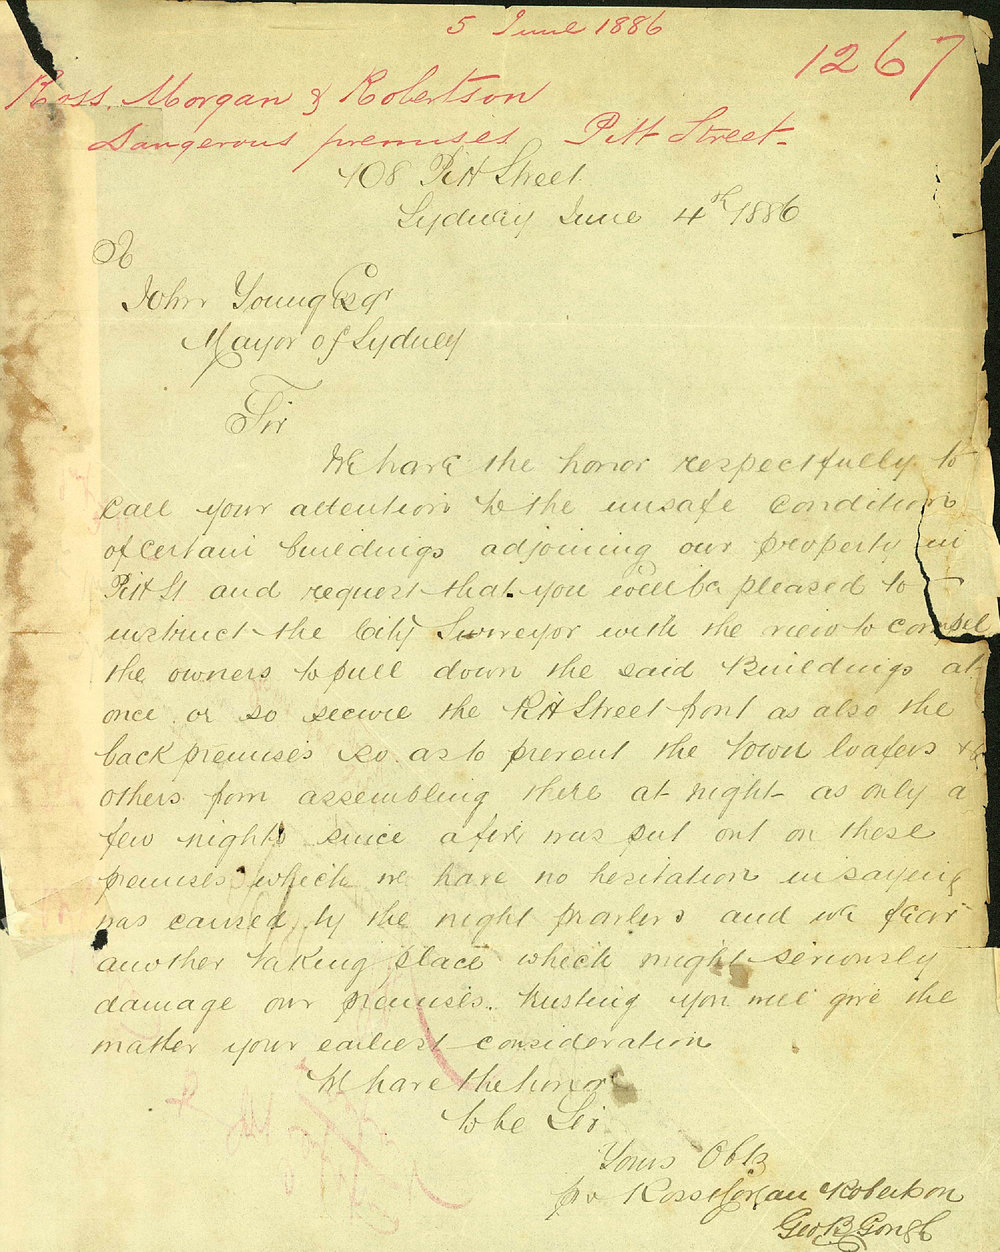 5 June 1886
1267
Ross, Morgan & Robertson
Dangerous premises Pitt Street
108 Pitt Street
Sydney June 4th 1886
To
John Young Esqr
Mayor of Sydney
Sir
We have the honor respectfully to
call your attention to the unsafe condition
of certain buildings adjoining our property in
Pitt St and request that you will be pleased to
instruct the City Surveyor with the view to compel
the owners to pull down the said Buildings at
once or so secure the Pitt Street front as also the
back premises so as to prevent the town loafers &
others from assembling there at night as only a
few nights since a fire was put out on these
premises which we have no hesitation in saying
was caused by the night prowlers and we fear
another taking place which might seriously
damage our premises. Trusting you will give the
matter your earliest consideration
We have the honor
to be Sir
Yours Obdt
pro Ross Morgan Robertson
Geo B